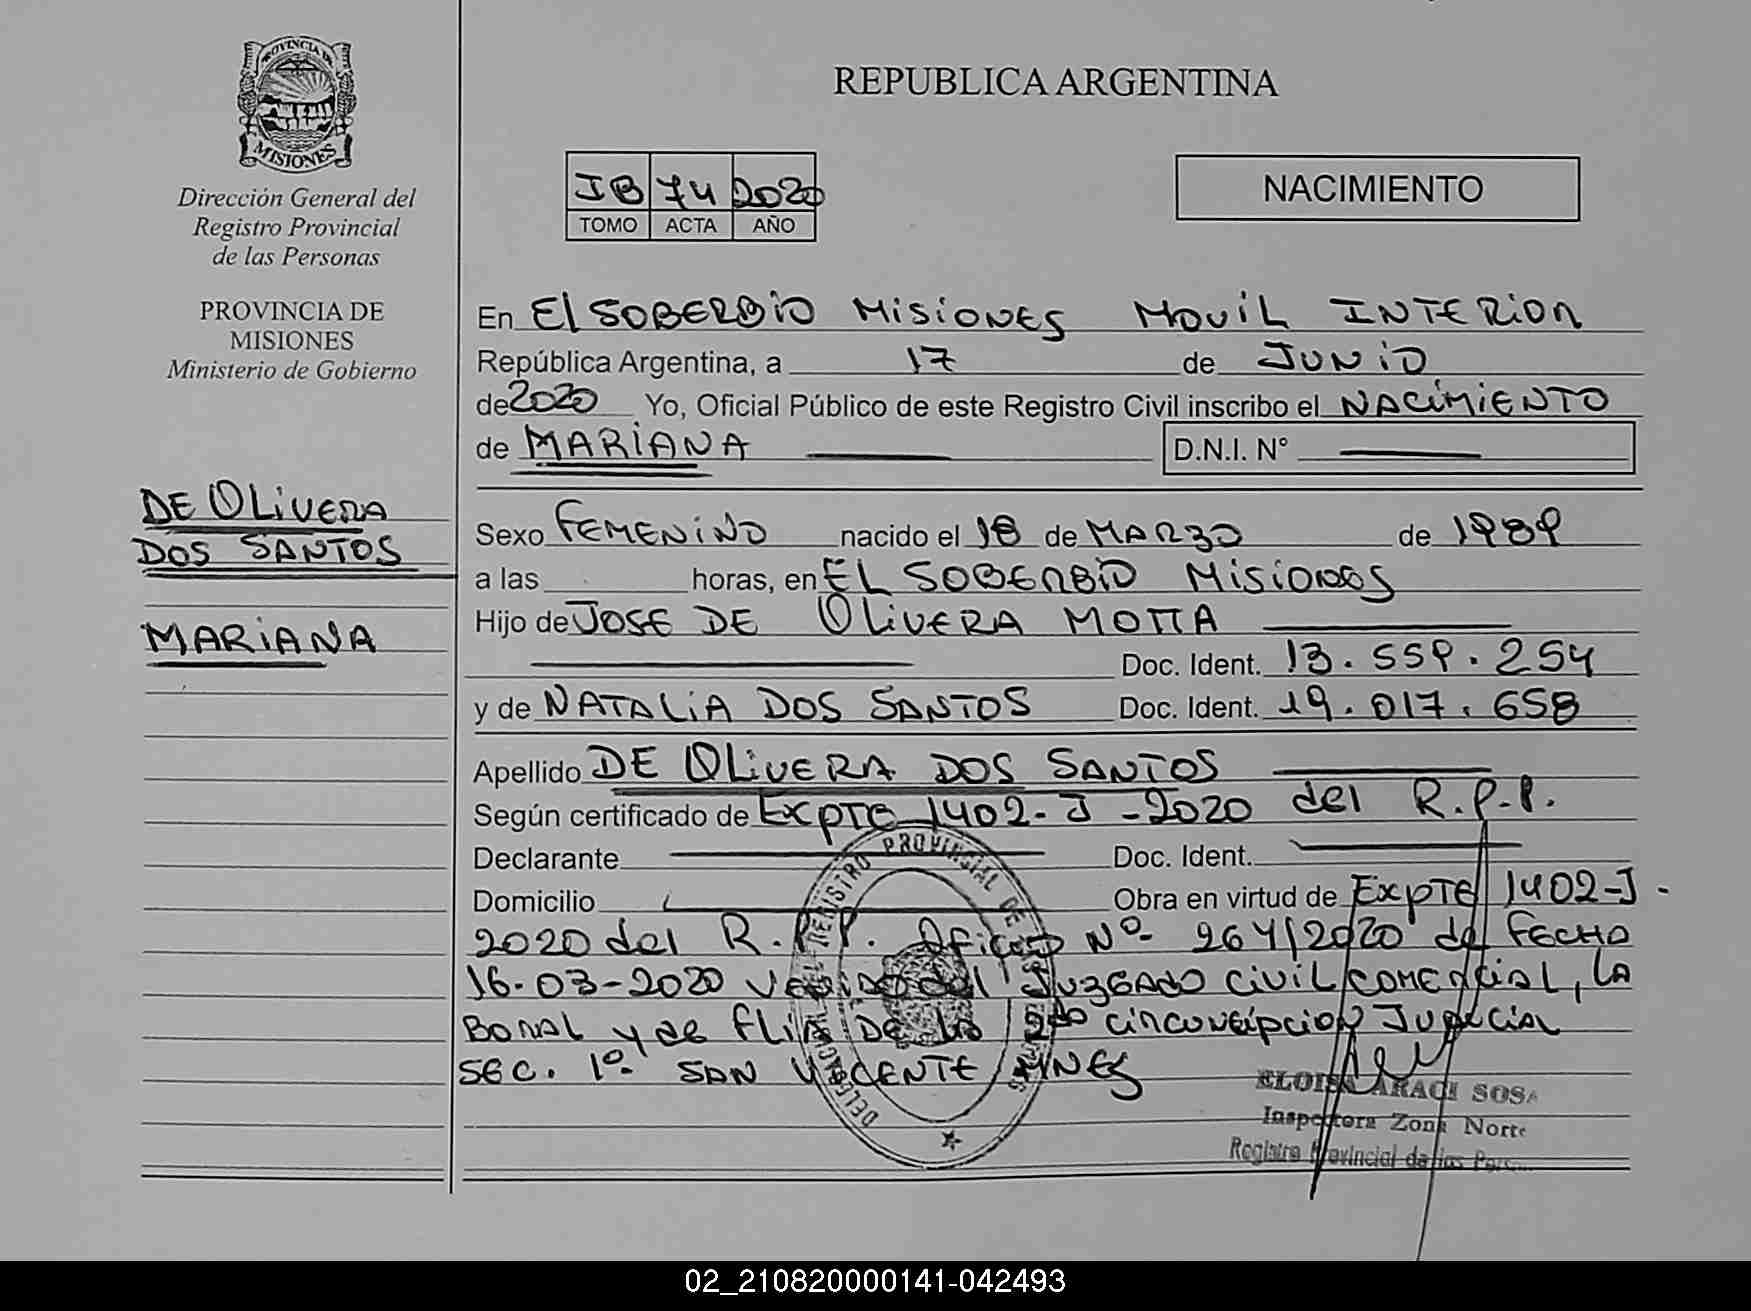 PROVINCIA DE
MISIONES
Dirección General del
Registro Provincial
de las Personas
PROVINCIA DE
MISIONES
Ministerio de Gobierno
DE OLIVERA
DOS SANTOS
MARIANA
REPUBLICA ARGENTINA
JB 74 2020
TOMO ACTA AÑO
NACIMIENTO
En El SOBERBIO MISIONES MOVIL INTERIOR
República Argentina, a 17 de JUNIO
de 2020 Yo, Oficial Público de este Registro Civil inscribo el NACIMIENTO
de MARIANA D.N.I. N°
Sexo FEMENINO nacido el 18 de MARZO de 1989
a las horas, en EL SOBERBIO MISIONES
Hijo de JOSE DE OLIVERA MOTTA
Doc. Ident. 13.559.254
y de NATALIA DOS SANTOS Doc. Ident. 19.017.658
Apellido DE OLIVERA DOS SANTOS
Según certificado de EXPTE 1402-J-2020 del R.P.P.
Declarante Doc. Ident.
Domicilio Obra en virtud de EXPTE 1402-J-
2020 del R.P.P. Oficio Nº 264/2020 de FECHA
16-03-2020 del JUZGADO CIVIL COMERCIAL, LA
BORAL y de FLIA DE LA 2da CIRCUNCIPCION JUDICIAL
SEC. 1º SAN VICENTE MNES
DELEGACION DEL REGISTRO PROVINCIAL DE
ELOISA ARACI SOSA
Inspectora Zona Norte
Registro Provincial de las Pers
02_210820000141-042493